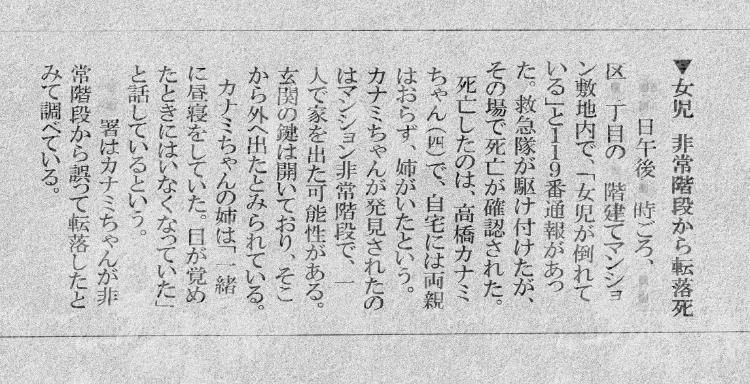 ▼女児 非常階段から転落死
日午後 時ごろ、
区 丁目の 階建てマンショ
ン敷地内で、「女児が倒れて
いる」と119番通報があっ
た。救急隊が駆け付けたが、
その場で死亡が確認された。
死亡したのは、高橋カナミ
ちゃん(四)で、自宅には両親
はおらず、姉がいたという。
カナミちゃんが発見されたの
はマンション非常階段で、一
人で家を出た可能性がある。
玄関の鍵は開いており、そこ
から外へ出たとみられている。
カナミちゃんの姉は「一緒
に昼寝をしていた。目が覚め
たときにはいなくなっていた」
と話しているという。
署はカナミちゃんが非
常階段から誤って転落したと
みて調べている。